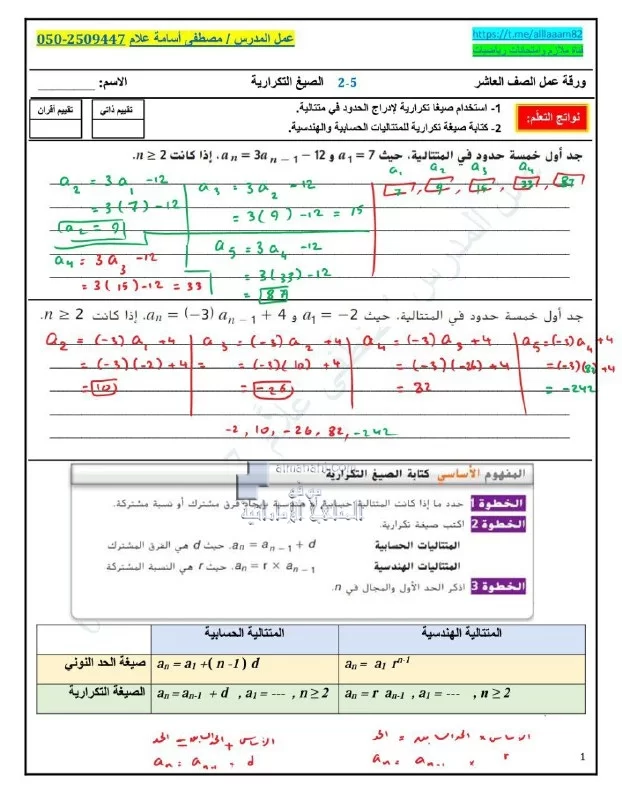 عمل المدرس / مصطفى أسامة علام 2509447-050
https://t.me/alllaaam82
قناة ملازم وامتحانات رياضيات
ورقة عمل الصف العاشر 2-5 الصيغ التكرارية الاسم: ________
نواتج التعلّم:
1- استخدام صيغا تكرارية لإدراج الحدود في متتالية.
2- كتابة صيغة تكرارية للمتتاليات الحسابية والهندسية.
تقييم ذاتي
تقييم أقران
جد أول خمسة حدود في المتتالية. حيث a1 = 7 و an = 3an − 1 − 12. إذا كانت n ≥ 2.
a1 a2 a3 a4
7, 9, 15, 33, 87
a2 = 3a1 -12
= 3(7) -12
a2 = 9
a3 = 3a2 -12
= 3(9) -12 = 15
a4 = 3a3 -12
= 3(15) -12 = 33
a5 = 3a4 -12
= 3(33) -12
= 87
جد أول خمسة حدود في المتتالية. حيث a1 = −2 و an = (−3) an − 1 + 4. إذا كانت n ≥ 2.
a2 = (-3) a1 +4
= (-3)(-2) +4
= 10
a3 = (-3) a2 +4
= (-3)(10) +4
= -26
a4 = (-3) a3 +4
= (-3)(-26) +4
= 82
a5 = (-3) a4 +4
= (-3)(82) +4
= -242
-2, 10, -26, 82, -242
المفهوم الأساسي كتابة الصيغ التكرارية
almanahj.com
موقع
المناهج الإماراتية
الخطوة 1 حدد ما إذا كانت المتتالية حسابية أو هندسية بإيجاد فرق مشترك أو نسبة مشتركة.
الخطوة 2 اكتب صيغة تكرارية.
المتتاليات الحسابية an = an − 1 + d. حيث d هي الفرق المشترك
المتتاليات الهندسية an = r × an − 1. حيث r هي النسبة المشتركة
الخطوة 3 اذكر الحد الأول والمجال في n.
المتتالية الحسابية
المتتالية الهندسية
صيغة الحد النوني
an = a1 +( n -1) d
an = a1 r^n-1
الصيغة التكرارية
an = an-1 + d , a1 = --- , n ≥ 2
an = r an-1 , a1 = --- , n ≥ 2
الأساس + الحد السابق = الحد
an = an-1 + d
الأساس × الحد السابق = الحد
an = an-1 × r
1